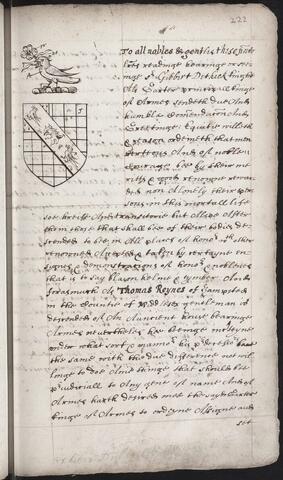 222
To all nobles & gentles these pnte
lres readinge hearinge or see-
inge Sr Gilbert Dethick knight
Als Garter principall kinge
of Armes sendeth due And
humble Comendacion And
Greetinge. Equitie willeth
& reason ordeineth that men
vertuous And of noble
courage bee by their me-
rits & good renowne rewar-
ded non Alonely their per-
sons in this mortall life
soe breife And transitorie but Allsoe After
them those that shall bee of their bodies de-
scended to bee in All places of honor wth other
renowned Accepted & taken by certayne en-
signes & demonstrations of honor & noblenes
that is to say blazon helme & tymber And
forasmuch As Thomas Reynes of Hampsted
in the Countie of Middlesex gentleman is
descended of An Auncient house bearinge
Armes neverthelesse hee beinge uncertayne
under what sort & manner his predecessors bare
the same with the due difference not wil-
linge to doe Anie thinge that should bee
preiudiciall to Any gent of name And of
Armes hath desired mee the sayd Garter
kinge of Armes to ordeyne Assigne and
set